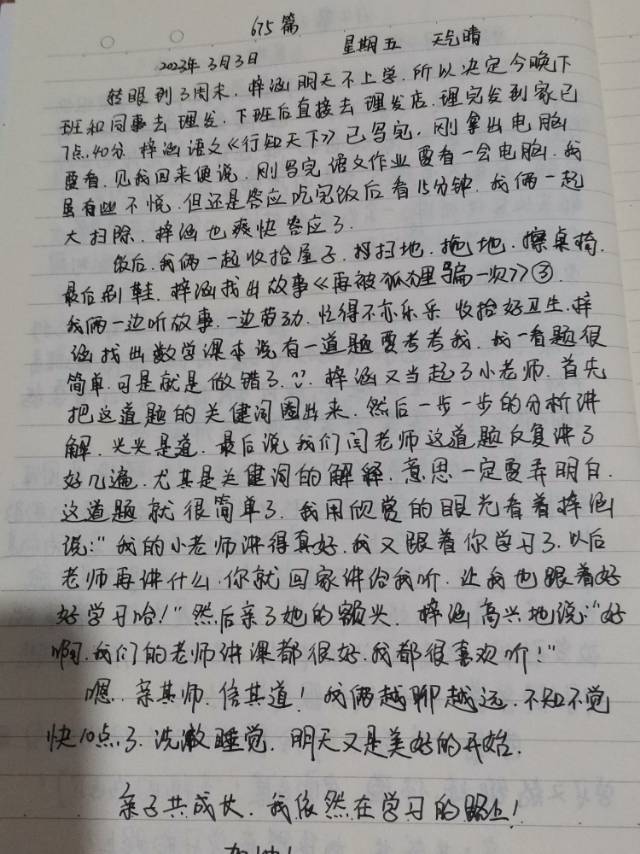 675篇
2023年3月3日 星期五 天气晴
转眼到了周末，梓涵明天不上学，所以决定今晚下
班和同事去理发，下班后直接去理发店，理完发到家已
7点40分，梓涵语文《行知天下》已写完，刚拿出电脑
要看，见我回来便说，刚写完语文作业要看一会电脑，我
虽有些不悦，但还是答应吃完饭后看15分钟，我俩一起
大扫除，梓涵也爽快答应了
饭后，我俩一起收拾屋子，扫地，拖地，擦桌椅，
最后刷鞋，梓涵找出故事《再被狐狸骗一次》③，
我俩一边听故事，一边劳动，忙得不亦乐乎 收拾好卫生，梓
涵找出数学课本说有一道题要考考我，我一看题很
简单，可是就是做错了，梓涵又当起了小老师，首先
把这道题的关健词圈出来，然后一步一步的分析讲
解，头头是道，最后说我们闫老师这道题反复讲了
好几遍，尤其是关健词的解释，意思一定要弄明白，
这道题就很简单了，我用欣赏的眼光看着梓涵
说："我的小老师讲得真好，我又跟着你学习了，以后
老师再讲什么，你就回家讲给我听，让我也跟着好
好学习哈！"然后亲了她的额头，梓涵高兴地说："好
啊，我们的老师讲课都很好，我都很喜欢听！"
嗯，亲其师，信其道！我俩越聊越远，不知不觉
快10点了，洗漱睡觉，明天又是美好的开始．
亲子共成长，我依然在学习的路上！